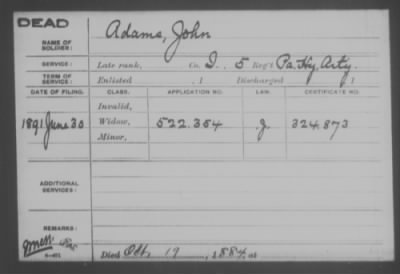 DEAD
NAME OF SOLDIER: Adams, John
SERVICE: Late rank, Co. I, 5 Reg't Pa. Hy. Arty.
TERM OF SERVICE: Enlisted , 1 Discharged , 1
DATE OF FILING. CLASS. APPLICATION NO. LAW. CERTIFICATE NO.
Invalid,
1891 June 30 Widow, 522.354 J. 324.873
Minor,
ADDITIONAL SERVICES:
REMARKS:
Died Oct. 19, 1884, at